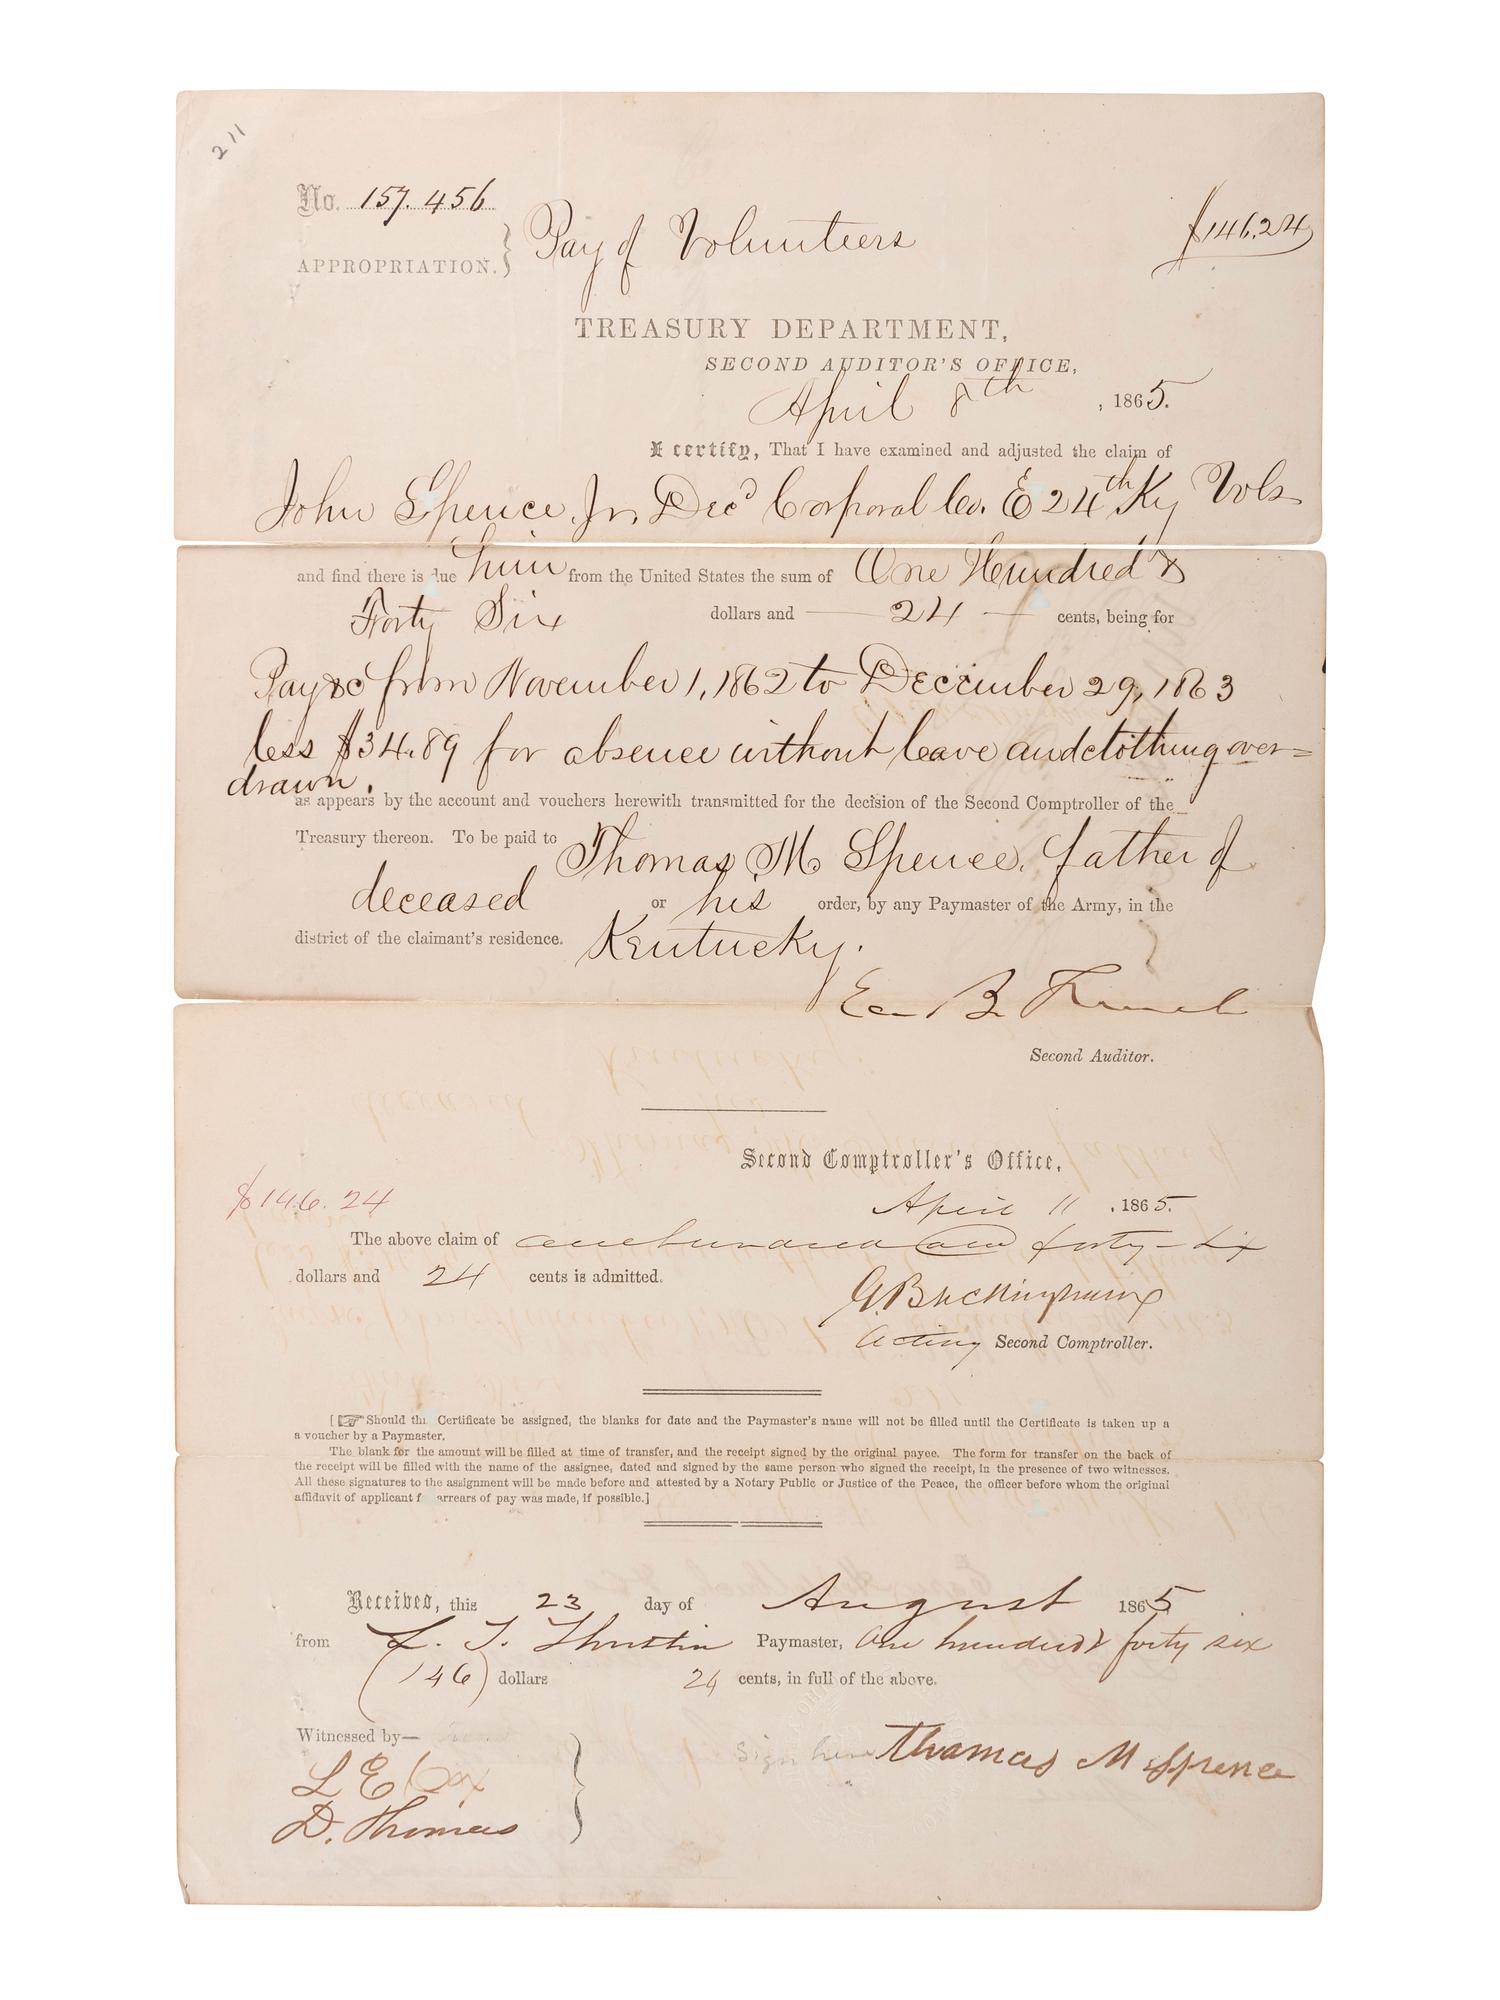 211
No. 157.456
APPROPRIATION. } Pay of Volunteers $146.24
TREASURY DEPARTMENT,
SECOND AUDITOR'S OFFICE,
April 8th, 1865.
I certify, That I have examined and adjusted the claim of
John Spence, Jr. Decd Corporal Co. E 24th Ky Vols
and find there is due him from the United States the sum of One Hundred &
Forty Six dollars and — 24 — cents, being for
Pay &c from November 1, 1862 to December 29, 1863
less $34.89 for absence without leave and clothing over=
drawn.
as appears by the account and vouchers herewith transmitted for the decision of the Second Comptroller of the
Treasury thereon. To be paid to Thomas M Spence, father of
deceased or his order, by any Paymaster of the Army, in the
district of the claimant's residence. Kentucky.
B. French
Second Auditor.
Second Comptroller's Office,
$146.24
April 11, 1865.
The above claim of one hundred and forty-six
dollars and 24 cents is admitted.
Buckingham
Acting Second Comptroller.
[☞ Should th Certificate be assigned, the blanks for date and the Paymaster's name will not be filled until the Certificate is taken up a
a voucher by a Paymaster.
The blank for the amount will be filled at time of transfer, and the receipt signed by the original payee. The form for transfer on the back of
the receipt will be filled with the name of the assignee, dated and signed by the same person who signed the receipt, in the presence of two witnesses.
All these signatures to the assignment will be made before and attested by a Notary Public or Justice of the Peace, the officer before whom the original
affidavit of applicant f arrears of pay was made, if possible.]
Received, this 23 day of August 1865
from Paymaster, One hundred & forty six
(146) dollars 24 cents, in full of the above.
Witnessed by—
Sign here Thomas M Spence
L E Cox
D. Thomas